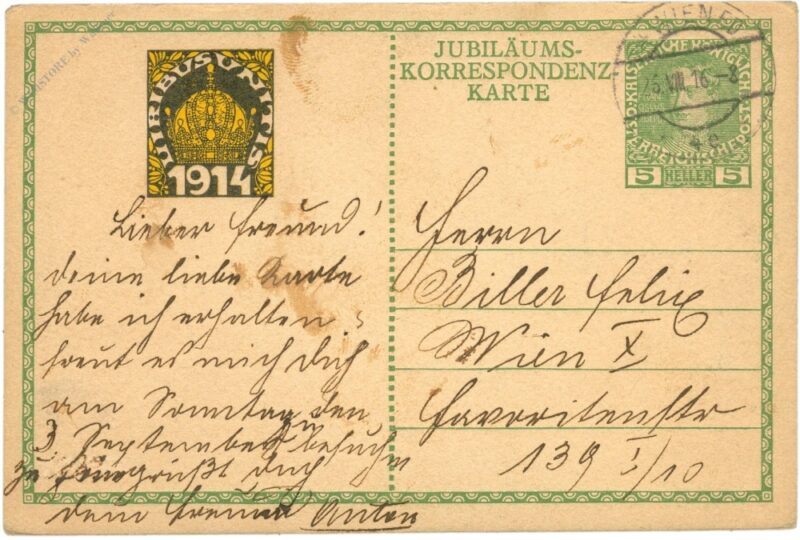 VIRIBUS UNITIS
1914
JUBILÄUMS-
KORRESPONDENZ
KARTE
WIEN
25.VIII.16-8
5 HELLER 5
Lieber Freund!
deine liebe Karte
habe ich erhalten
freut es mich dich
am Sonntag den
3. September zu besuchen
grüßt dich
dein Freund Anton
Herrn
Biller Felix
Wien X
Favoritenstr
139 I/10